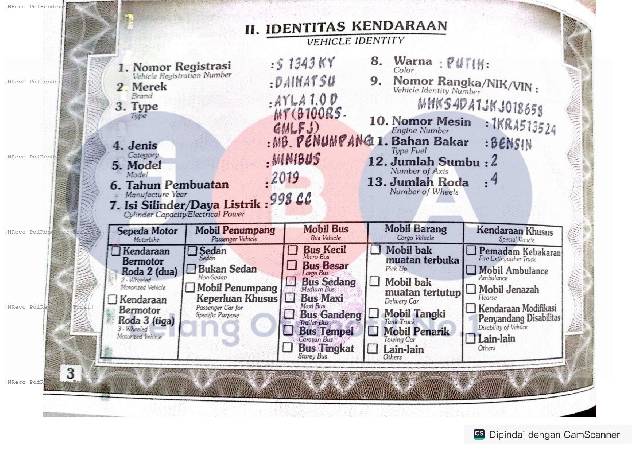 II. IDENTITAS KENDARAAN
VEHICLE IDENTITY
1. Nomor Registrasi : S 1343 KY
Vehicle Registration Number
2. Merek : DAIHATSU
Brand
3. Type : AYLA 1.0 D
Type
MT (B100RS-
GMLFJ)
4. Jenis : MB. PENUMPANG
Category
5. Model : MINIBUS
Model
6. Tahun Pembuatan : 2019
Manufacture Year
7. Isi Silinder/Daya Listrik : 998 CC
Cylinder Capacity/Electrical Power
8. Warna : PUTIH
Color
9. Nomor Rangka/NIK/VIN :
Vehicle Identity Number
MHKS4DA1JKJ018658
10. Nomor Mesin : 1KRA513524
Engine Number
11. Bahan Bakar : BENSIN
Type Fuel
12. Jumlah Sumbu : 2
Number of Axis
13. Jumlah Roda : 4
Number of Wheels
Sepeda Motor
Motorbike
Kendaraan
Bermotor
Roda 2 (dua)
2 - Wheeled
Motorized Vehicle
Kendaraan
Bermotor
Roda 3 (tiga)
3 - Wheeled
Motorized Vehicle
Mobil Penumpang
Passenger Vehicle
Sedan
Sedan
Bukan Sedan
Non Sedan
Mobil Penumpang
Keperluan Khusus
Passenger Car for
Specific Purpose
Mobil Bus
Bus Vehicle
Bus Kecil
Micro Bus
Bus Besar
Large Bus
Bus Sedang
Medium Bus
Bus Maxi
Maxi Bus
Bus Gandeng
Bus Tempel
Bus Tingkat
Mobil Barang
Cargo Vehicle
Mobil bak
muatan terbuka
Pick Up
Mobil bak
muatan tertutup
Delivery Car
Mobil Tangki
Mobil Penarik
Towing Car
Lain-lain
Others
Kendaraan Khusus
Special Vehicle
Pemadam Kebakaran
Mobil Ambulance
Ambulance
Mobil Jenazah
Hearse
Kendaraan Modifikasi
Penyandang Disabilitas
Disability of Vehicle
Lain-lain
Others
3
IBA
CS Dipindai dengan CamScanner